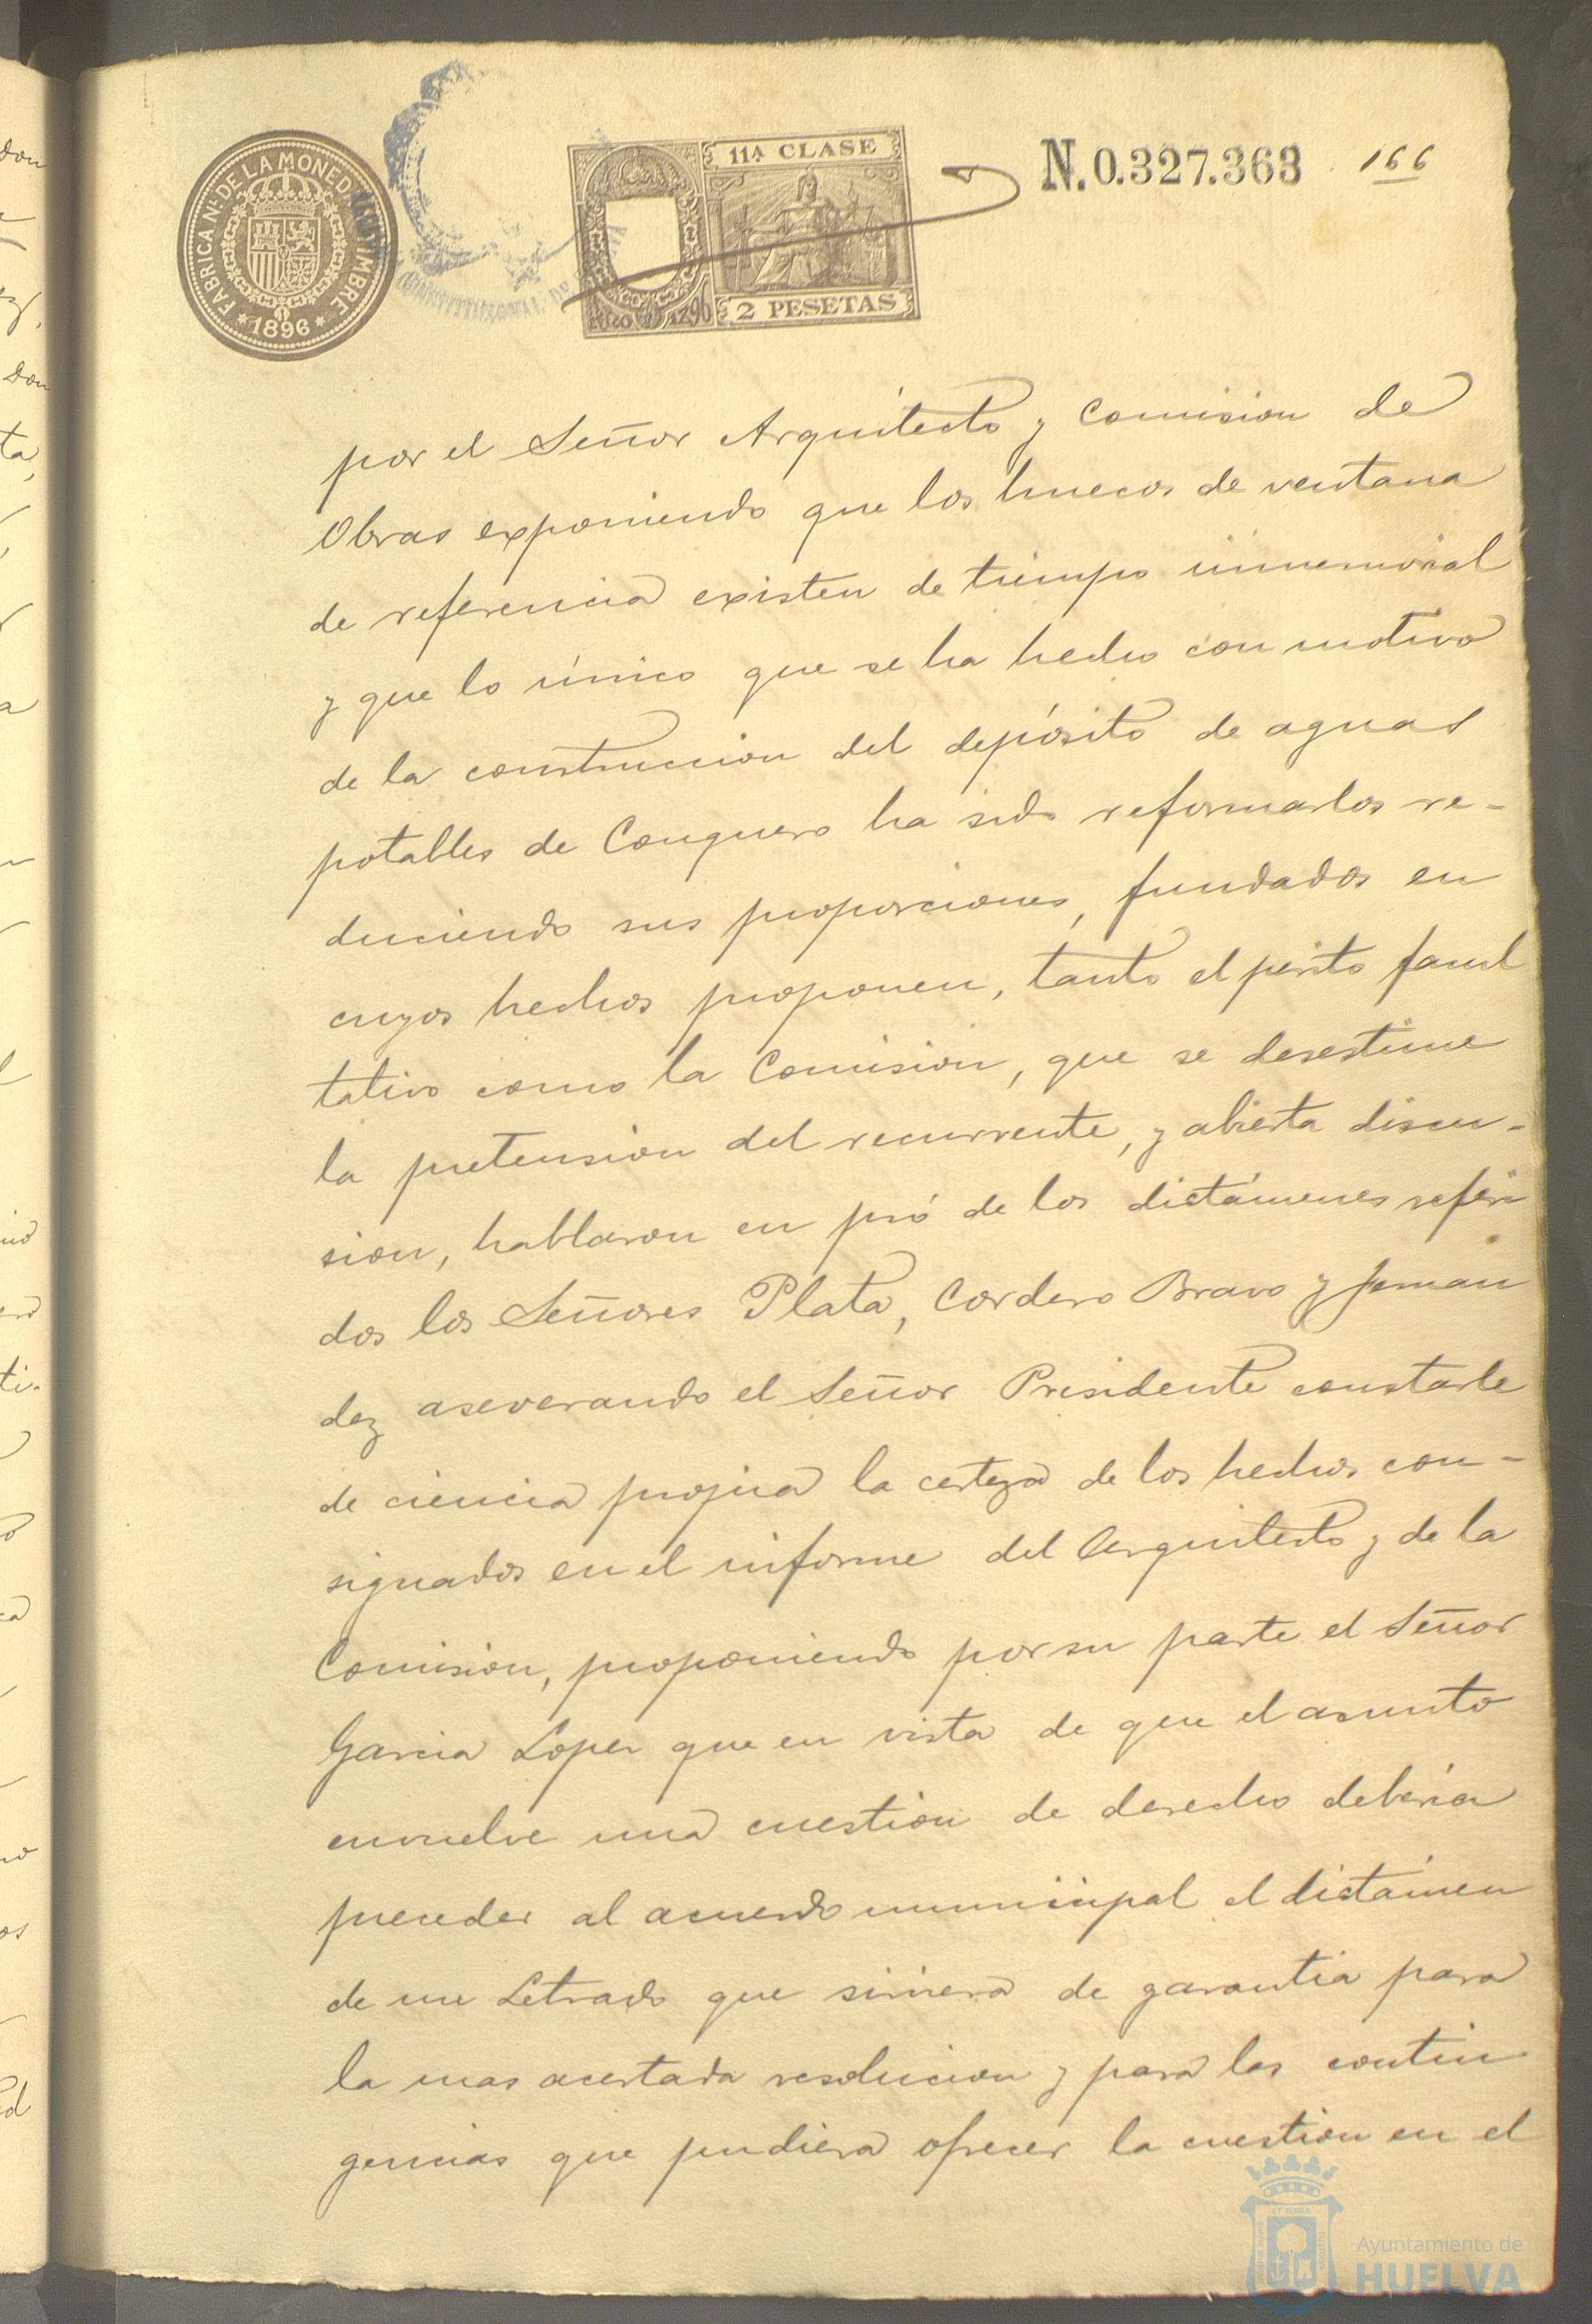 FABRICA N.L DE LA MONEDA Y TIMBRE
* 1896 *
CONSTITUCIONAL DE
11ª CLASE
1896
2 PESETAS
N.0.327.363
166
por el Señor Arquitecto y Comision de
Obras exponiendo que los huecos de ventana
de referencia existen de tiempo inmemorial
y que lo único que se ha hecho con motivo
de la construccion del depósito de aguas
potables de Conquero ha sido reformarlos re-
duciendo sus proporciones, fundados en
cuyos hechos proponen, tanto el perito facul
tativo como la Comision, que se desestime
la pretension del recurrente, y abierta discu-
sion, hablaron en pró de los dictámenes referi
dos los Señores Plata, Cordero Bravo y Fernan
dez aseverando el Señor Presidente constarle
de ciencia propia la certeza de los hechos con-
signados en el informe del Arquitecto y de la
Comision, proponiendo por su parte el Señor
Garcia Lopez que en vista de que el asunto
envuelve una cuestion de derecho debería
preceder al acuerdo municipal el dictámen
de un Letrado que sirviera de garantía para
la mas acertada resolucion y para las contin
gencias que pudiera ofrecer la cuestion en el
Ayuntamiento de
HUELVA